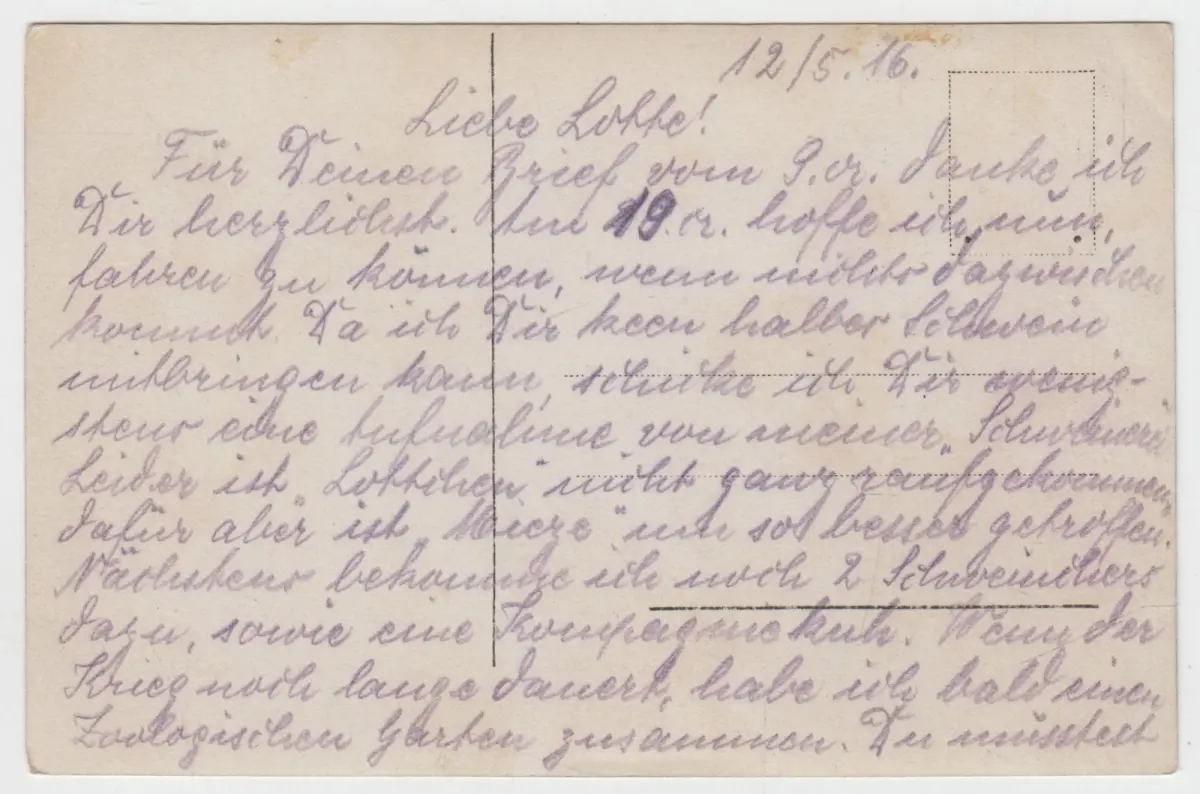 12/5.16.
Liebe Lotte!
Für Deinen Brief vom 9. cr. danke ich
Dir herzlichst. Am 19. cr. hoffe ich nun,
fahren zu können, wenn nichts dazwischen
kommt. Da ich Dir keen halbes Schwein
mitbringen kann, schicke ich Dir wenig-
stens eine Aufnahme von meiner „Schweinerei
Leider ist „Lottchen" nicht ganz raufgekommen,
dafür aber ist „Mieze" um so besser getroffen.
Nächstens bekomme ich noch 2 Schweinchens
dazu, sowie eine Kompagniekuh. Wenn der
Krieg noch lange dauert, habe ich bald einen
Zoologischen Garten zusammen. Du müsstest